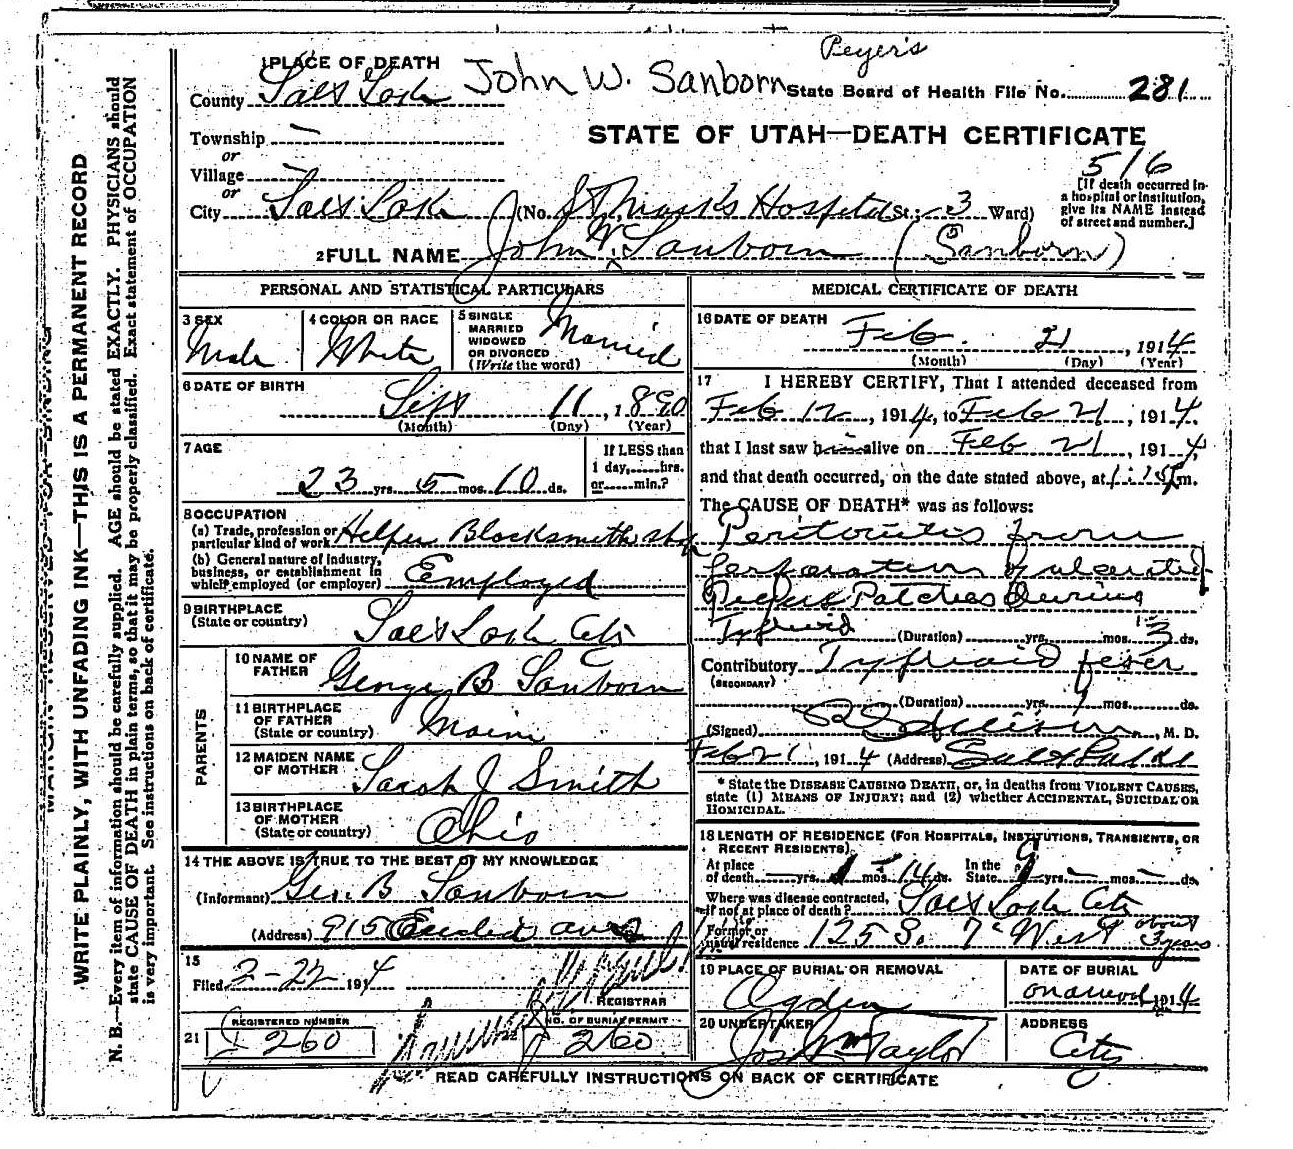 Peyer's
1 PLACE OF DEATH John W. Sanborn
County Salt Lake State Board of Health File No. 281
Township —
or
STATE OF UTAH—DEATH CERTIFICATE
Village —
or
516
City Salt Lake (No. St Marks Hospital St.; 3 Ward)
[If death occurred in a hospital or institution, give its NAME instead of street and number.]
2 FULL NAME John W. Sanborn (Sanborn)
WRITE PLAINLY, WITH UNFADING INK—THIS IS A PERMANENT RECORD
N. B.—Every item of information should be carefully supplied. AGE should be stated EXACTLY. PHYSICIANS should
state CAUSE OF DEATH in plain terms, so that it may be properly classified. Exact statement of OCCUPATION
is very important. See instructions on back of certificate.
PERSONAL AND STATISTICAL PARTICULARS
3 SEX Male
4 COLOR OR RACE White
5 SINGLE MARRIED WIDOWED OR DIVORCED (Write the word) Married
6 DATE OF BIRTH Sept 11, 1890
(Month) (Day) (Year)
7 AGE
23 yrs. 5 mos. 10 ds.
If LESS than 1 day,......hrs. or......min.?
8 OCCUPATION
(a) Trade, profession or particular kind of work Helper Blacksmith shop
(b) General nature of industry, business, or establishment in which employed (or employer) Employed
9 BIRTHPLACE
(State or country) Salt Lake City
PARENTS
10 NAME OF FATHER George B Sanborn
11 BIRTHPLACE OF FATHER (State or country) Maine
12 MAIDEN NAME OF MOTHER Sarah J Smith
13 BIRTHPLACE OF MOTHER (State or country) Ohio
14 THE ABOVE IS TRUE TO THE BEST OF MY KNOWLEDGE
(Informant) Geo. B Sanborn
(Address) 915 Euclid ave
15
Filed 2-22 1914
REGISTRAR
21 REGISTERED NUMBER 260
22 NO. OF BURIAL PERMIT 260
MEDICAL CERTIFICATE OF DEATH
16 DATE OF DEATH Feb. 21, 1914
(Month) (Day) (Year)
17 I HEREBY CERTIFY, That I attended deceased from
Feb 12, 1914, to Feb 21, 1914.
that I last saw him alive on Feb 21, 1914,
and that death occurred, on the date stated above, at m.
The CAUSE OF DEATH* was as follows:
Peritonitis from
perforation of ulcerated
Peyers Patches During
Typhoid (Duration) yrs. mos. 3 ds.
Contributory Typhoid fever
(SECONDARY)
(Duration) yrs. 1 mos. ds.
(Signed) , M. D.
Feb 21, 1914 (Address) Salt Lake
* State the DISEASE CAUSING DEATH, or, in deaths from VIOLENT CAUSES,
state (1) MEANS OF INJURY; and (2) whether ACCIDENTAL, SUICIDAL OR
HOMICIDAL.
18 LENGTH OF RESIDENCE (FOR HOSPITALS, INSTITUTIONS, TRANSIENTS, OR
RECENT RESIDENTS)
At place of death yrs. mos. 14 ds. In the State yrs. — mos. — ds.
Where was disease contracted, if not at place of death? Salt Lake City
Former or usual residence 125 So. 7th West about 3 years
19 PLACE OF BURIAL OR REMOVAL Ogden
DATE OF BURIAL 1914
20 UNDERTAKER Jos Wm Taylor
ADDRESS City
READ CAREFULLY INSTRUCTIONS ON BACK OF CERTIFICATE